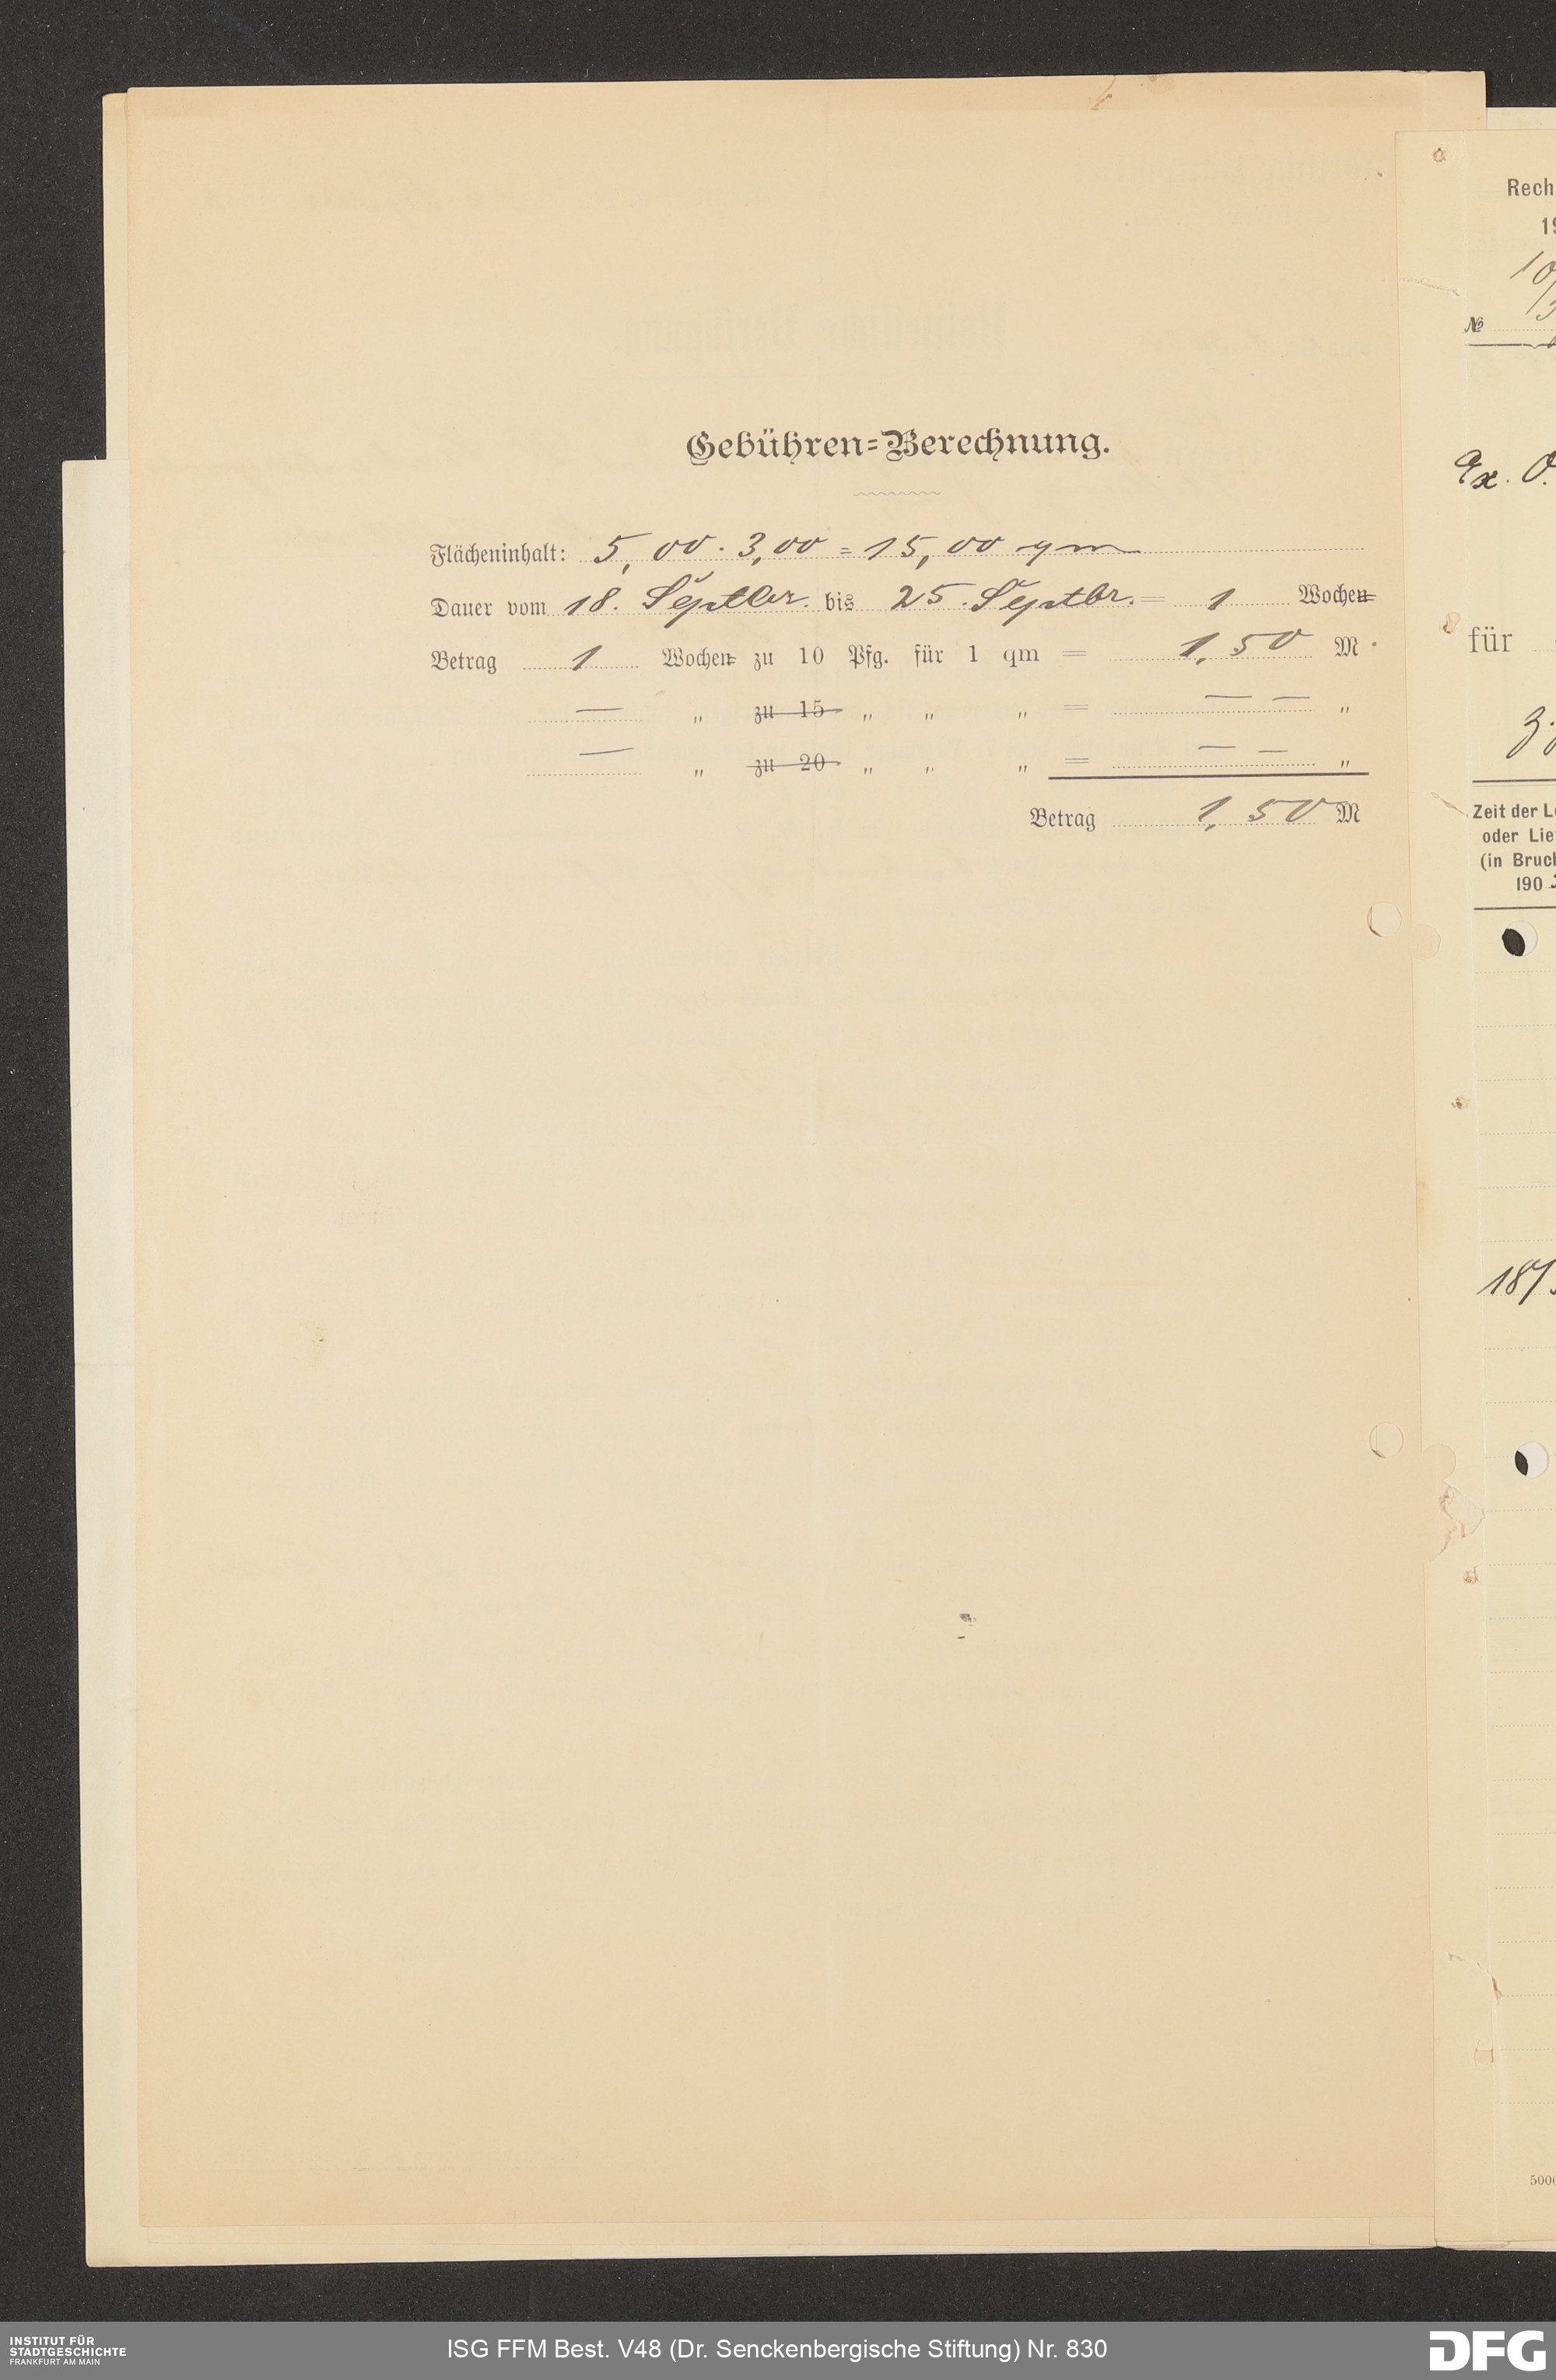 Gebühren-Berechnung.
Flächeninhalt: 5,00 · 3,00 = 15,00 qm
Dauer vom 18. Septbr. bis 25. Septbr. = 1 Wochen
Betrag 1 Wochen zu 10 Pfg. für 1 qm = 1,50 M.
— „ zu 15 „ „ „ = — — „
— „ zu 20 „ „ „ = — — „
Betrag 1,50 M
Rech
19
10/
№
Ex. O.
für
Zeit der Le
oder Lie
(in Bruch
190
18/
5000
INSTITUT FÜR
STADTGESCHICHTE
FRANKFURT AM MAIN
ISG FFM Best. V48 (Dr. Senckenbergische Stiftung) Nr. 830
DFG